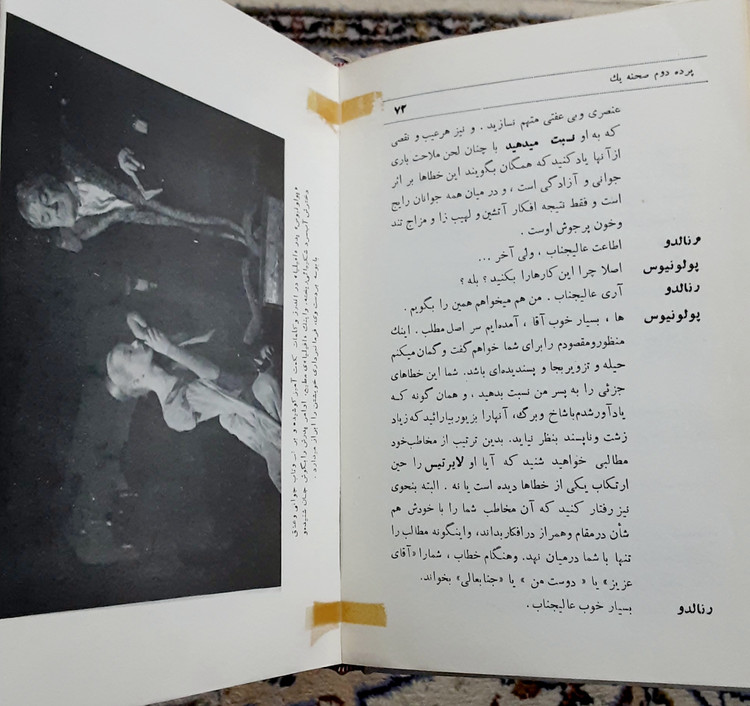 پرده دوم صحنه یك
۷۳
عنصری وبی عفتی متهم نسازید . و نیز هرعیب و نقصی
که به او نسبت میدهید با چنان لحن ملاحت باری
ازآنها یادکنید که همگان بگویند این خطاها بر اثر
جوانی و آزادگی است ، و در میان همه جوانان رایج
است و فقط نتیجه افکار آتشین و لهیب زا و مزاج تند
وخون پرجوش اوست .
رنالدو اطاعت عالیجناب ، ولی آخر ...
پولونیوس اصلا چرا این کارهارا بکنید؟ بله ؟
رنالدو آری عالیجناب . من هم میخواهم همین را بگویم .
پولونیوس ها ، بسیار خوب آقا ، آمده‌ایم سر اصل مطلب . اینك
منظورومقصودم رابرای شما خواهم گفت و گمان میکنم
حیله و تزویربجا و پسندیده‌ای باشد. شما این خطاهای
جزئی را به پسر من نسبت بدهید ، و همان گونه کـه
یادآورشدم‌باشاخ وبرگ، آنهارا بزیوربیارائید که‌زیاد
زشت وناپسند بنظر نیاید. بدین ترتیب از مخاطب‌خود
مطالبی خواهید شنید که آیا او لایرتیس را حین
ارتکاب یکی از خطاها دیده است یا نه . البته بنحوی
نیز رفتار کنید که آن مخاطب شما را با خودش هم
شأن درمقام وهمراز درافکاربداند، واینگونه مطالب را
تنها با شما درمیان نهد. وهنگام خطاب ، شمارا «آقای
عزیز» یا « دوست من » یا «جنابعالی» بخواند.
رنالدو بسیار خوب عالیجناب .